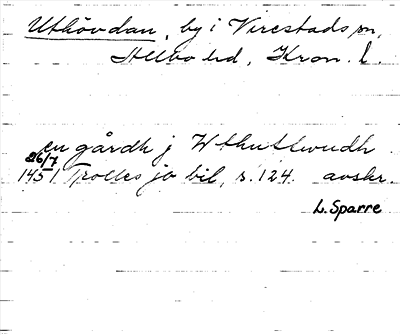 Uthövdan, by i Virestads sn,
Allbo hd, Kron. l.
en gårdh j Wthuffwudh
26/7
1451 Trolles jo bil, s. 124. avskr.
L. Sparre